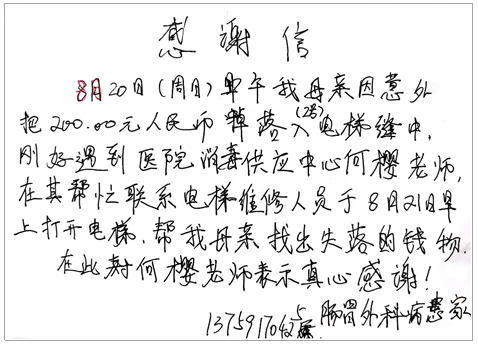 感谢信
8月20日(周日)早午我母亲因意外
把200.00元人民币掉落入(2号)电梯缝中,
刚好遇到医院消毒供应中心何樱老师,
在其帮忙联系电梯维修人员于8月21日早
上打开电梯,帮我母亲找出失落的钱物.
在此对何樱老师表示真心感谢!
肠胃外科病患家
属